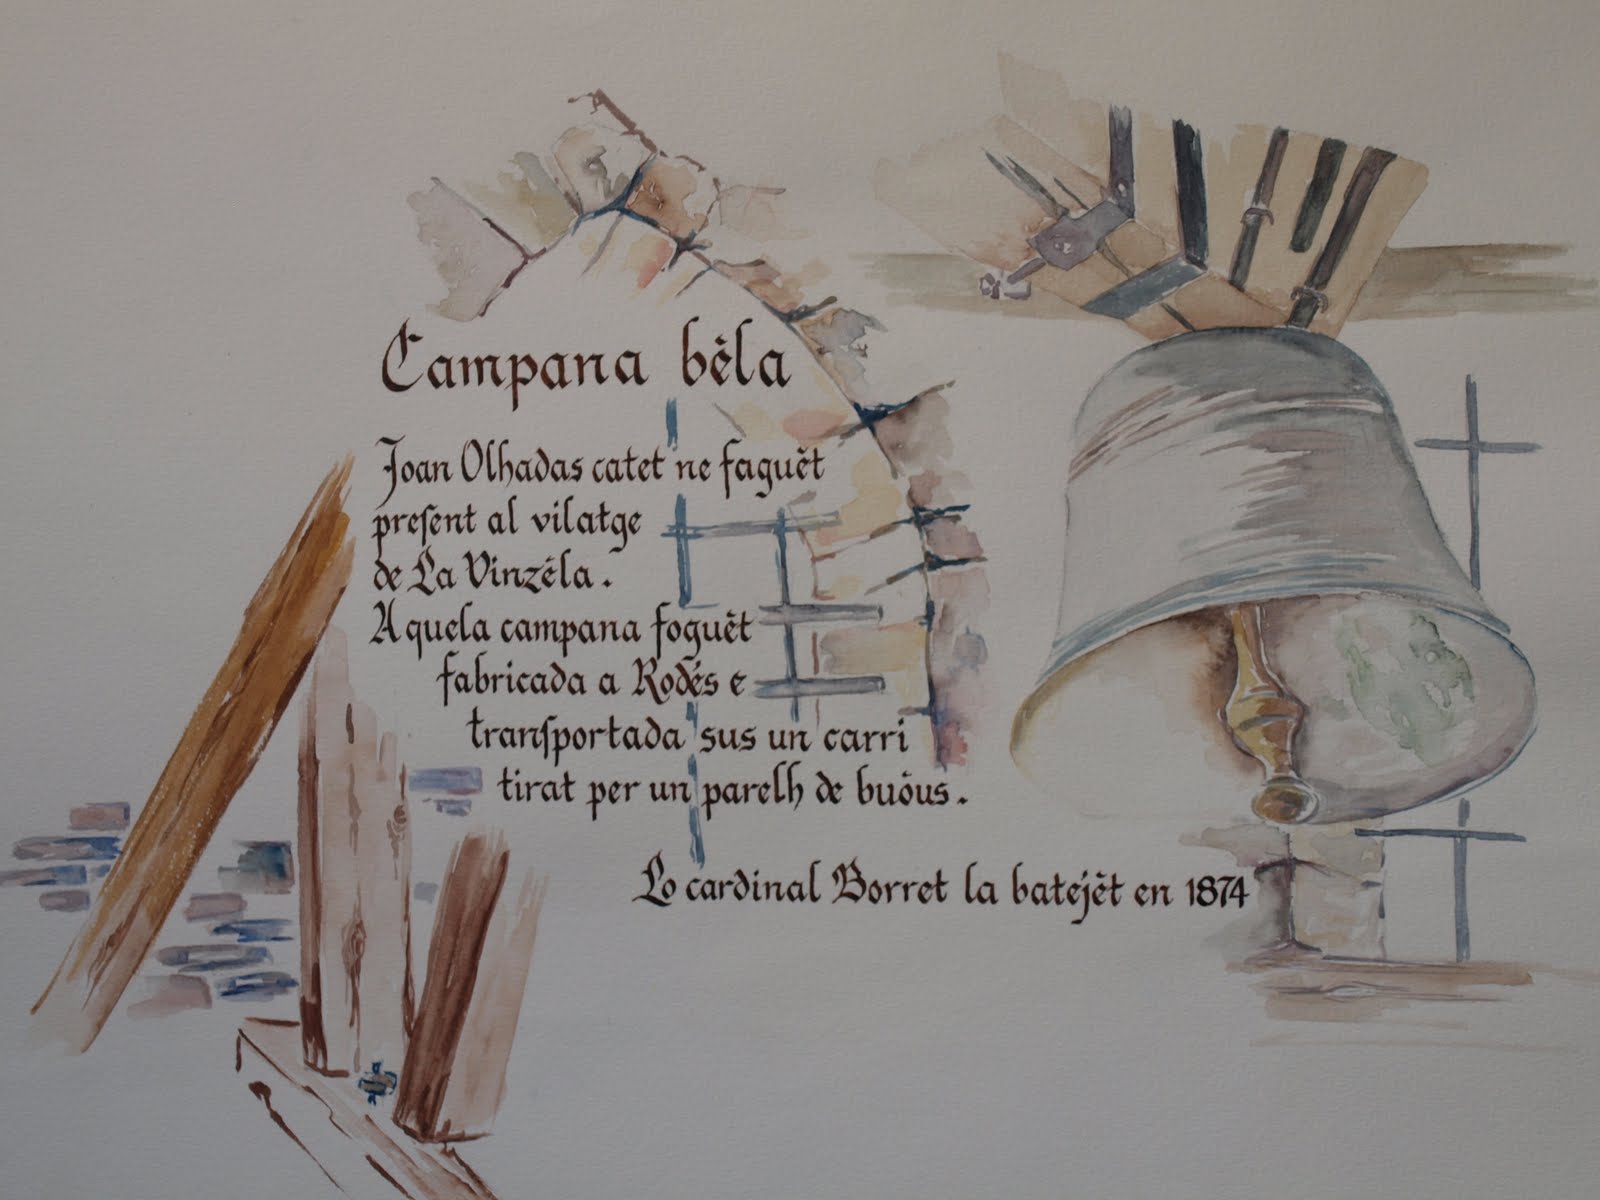 Campana bèla
Joan Olhadas catet ne faguèt
preſent al vilatge
de La Vinzèla.
Aquela campana foguèt
fabricada a Rodés e
tranſportada sus un carri
tirat per un parelh de buòus.
Lo cardinal Borret la batejèt en 1874